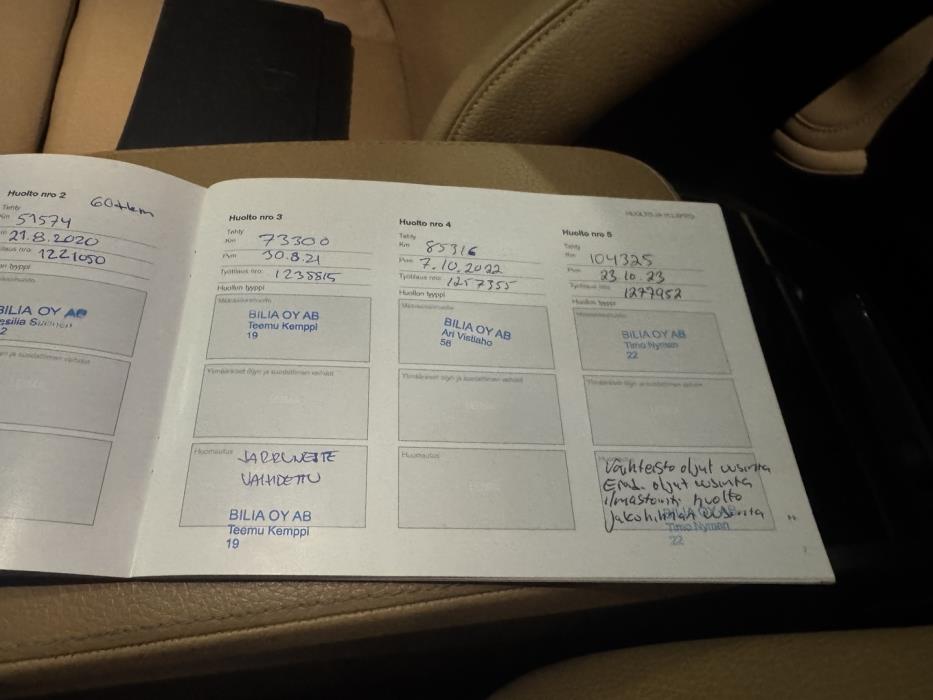 Huolto nro 2
60tkm
Tehty
Km 51574
21.8.2020
1221050
BILIA OY AB
2
Huolto nro 3
Tehty
Km 73300
Pvm 30.8.21
Työtilaus nro: 1238815
Huollon tyyppi
Määräaikaishuolto
BILIA OY AB
Teemu Kemppi
19
Ylimääräiset öljyn ja suodattimen vaihdot
Huomautus JARRUNESTE
VAIHDETTU
BILIA OY AB
Teemu Kemppi
19
Huolto nro 4
Tehty
Km 85316
Pvm 7.10.2022
Työtilaus nro: 1257355
Huollon tyyppi
Määräaikaishuolto
BILIA OY AB
Ari Vistiaho
58
Ylimääräiset öljyn ja suodattimen vaihdot
Huomautus
HUOLTO JA YLLÄPITO
Huolto nro 5
Tehty
Km 104325
Pvm 23.10.23
Työtilaus nro: 1277952
Huollon tyyppi
Määräaikaishuolto
BILIA OY AB
Timo Nyman
22
Ylimääräiset öljyn ja suodattimen vaihdot
Vaihteisto öljyt uusinta
öljyt uusinta
ilmastointi huolto
Jakohihnan uusinta
BILIA OY AB
Timo Nyman
22
7